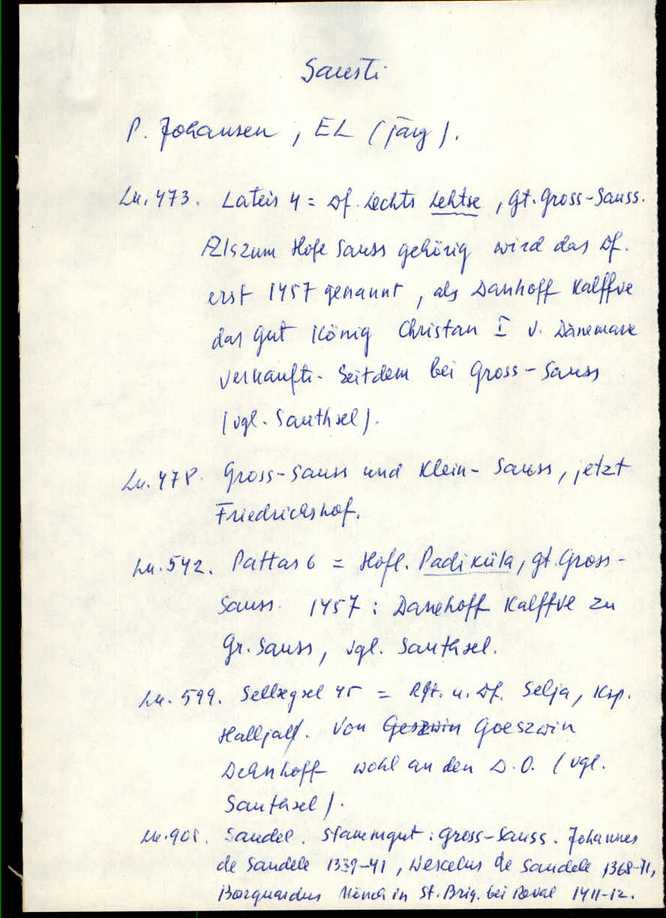 Sausti
P. Johansen, EL (järg).
Lk. 473. Lateis 4 = Df. Lechts Lehtse, Gt. Gross-Sauss.
Als zum Hofe Sauss gehörig wird das Df.
erst 1457 genannt, als Danhoff Kalffve
das Gut König Christan I v. Dänemark
verkauft. Seitdem bei Gross-Sauss
(vgl. Sauthsel).
Lk. 478. Gross-Sauss und Klein-Sauss, jetzt
Friedrichshof.
Lk. 542. Pattas 6 = Hofl. Padiküla, Gt. Gross-
Sauss. 1457: Danehoff Kalffve zu
Gr. Sauss, vgl. Sauthsel.
Lk. 599. Sellægsel 45 = Rft. u. Df. Selja, Ksp.
Halljall. Von Goeszwin
Dehnhoff wohl an den D.O. (vgl.
Sauthsel).
Lk. 901. Sandel. Stammgut: Gross-Sauss. Johannes
de Sandele 1339-41, Wescelus de Sandele 1368-71,
Borquardus Mönch in St. Brig. bei Reval 1411-12.